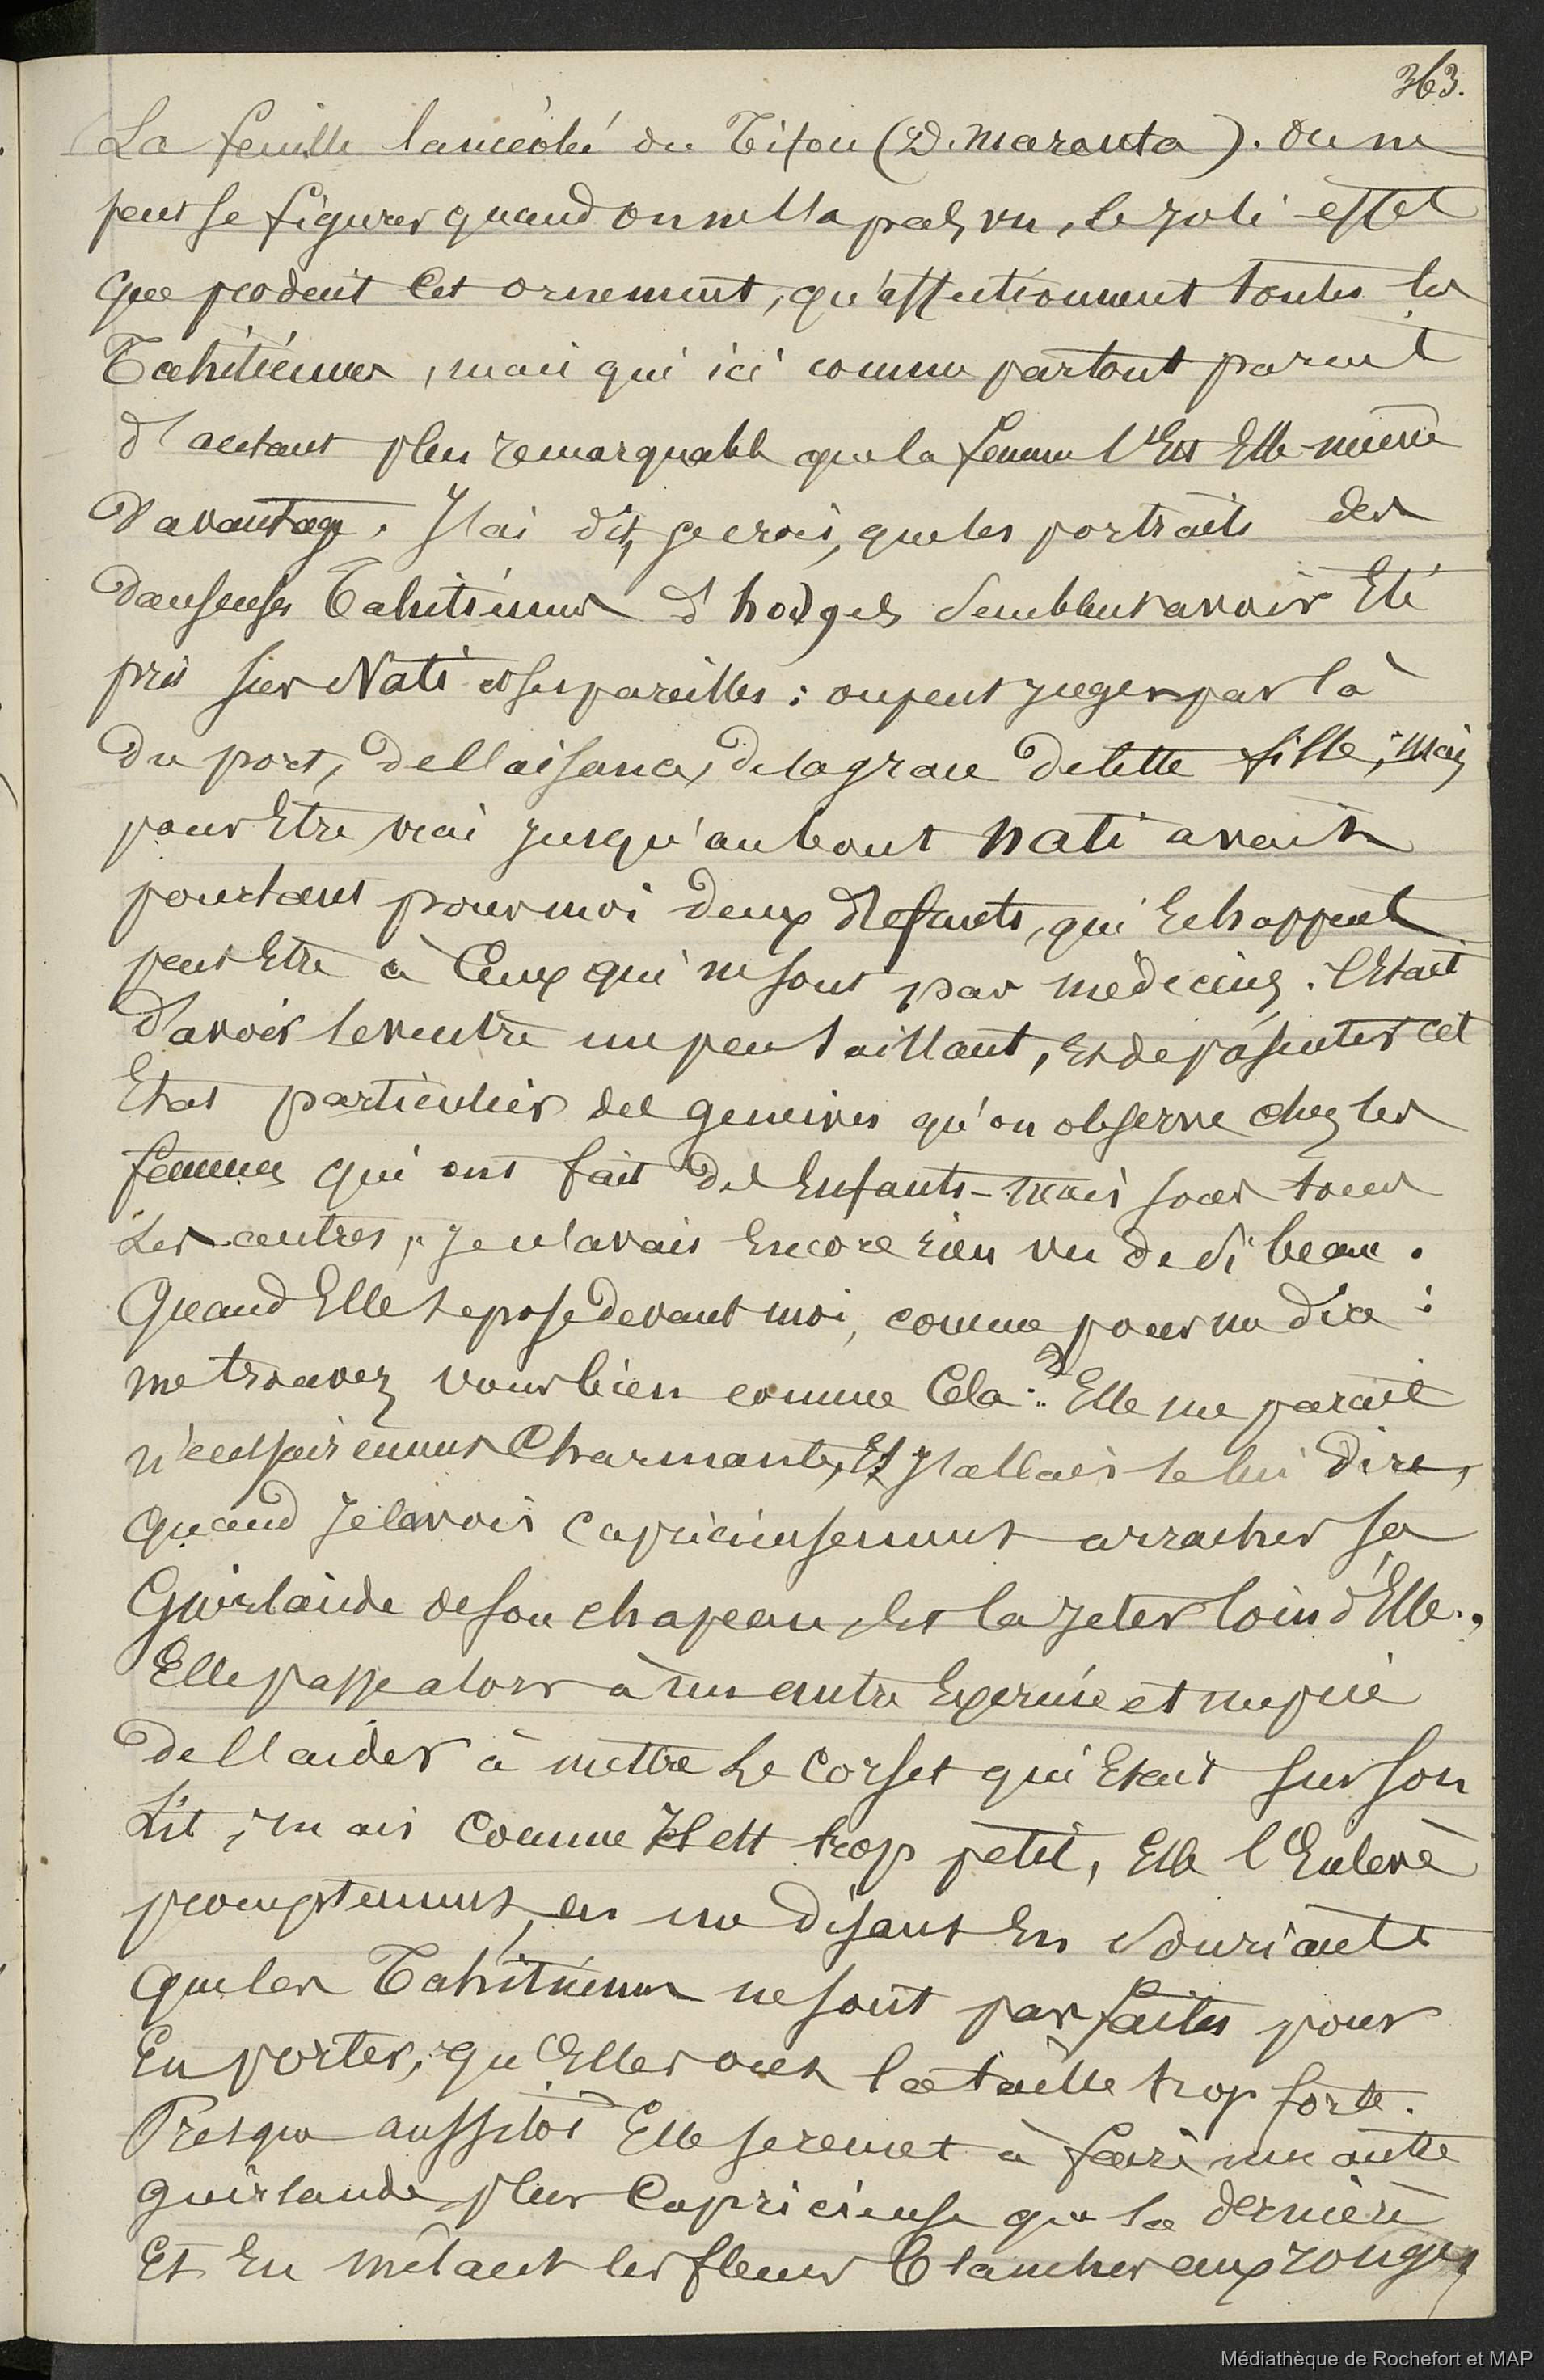 363.
La feuille lancéolé du Titou (D. Maranta). On ne
peut se figurer quand on ne l'a pas vu, le joli effet
que produit cet ornement, qu'affectionnent toutes les
Tahitiennes, mais qui ici comme partout parait
d'autant plus remarquable que la femme l'est Elle-même
D'avantage. J'ai dit, je crois, que les portraits des
danseuses Tahitiennes d'hodges semblent avoir Eté
pris sur Nati et ses pareilles : on peut juger par là
du port, de l'aisance, de la grace de cette fille ; Mais
pour Etre vrai jusqu'au bout Nati avait
pourtant pour moi deux défauts, qui Echappent
peut Etre à Ceux qui ne sont pas médecins. C'Etait
d'avoir le ventre un peu saillant, et de présenter cet
Etat particulier des gencives qu'on observe chez les
femmes qui ont fait des Enfants - mais sous tous
Les autres, je n'avais Encore rien vu de si beau.
Quand Elle se pose devant moi, comme pour me dire :
me trouvez vous bien comme Cela ? Elle me parait
nécessairement Charmante, Et j'allais le lui dire,
quand Je la vois capricieusement arracher sa
Guirlande de son chapeau, Et la jeter loin d'Elle.
Elle passe alors à un autre Exercice et me prie
de l'aider à mettre Le Corset qui Etait sur son
Lit, mais comme Il est trop petit, Elle l'Enlevè
promptement, en me disant En souriante
que les Tahitiennes ne sont pas faites pour
En porter, qu'Elles ont la taille trop forte.
Presque aussitôt Elle se remet à faire une autre
guirlande plus Capricieuse que la dernière
Et En mêlant les fleurs blanches aux rouges,
Médiathèque de Rochefort et MAP